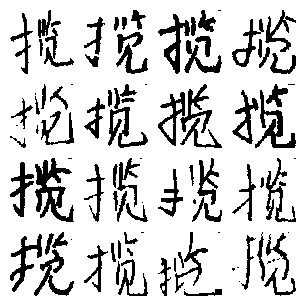 揽揽揽揽
揽揽揽揽
揽揽揽揽
揽揽揽揽